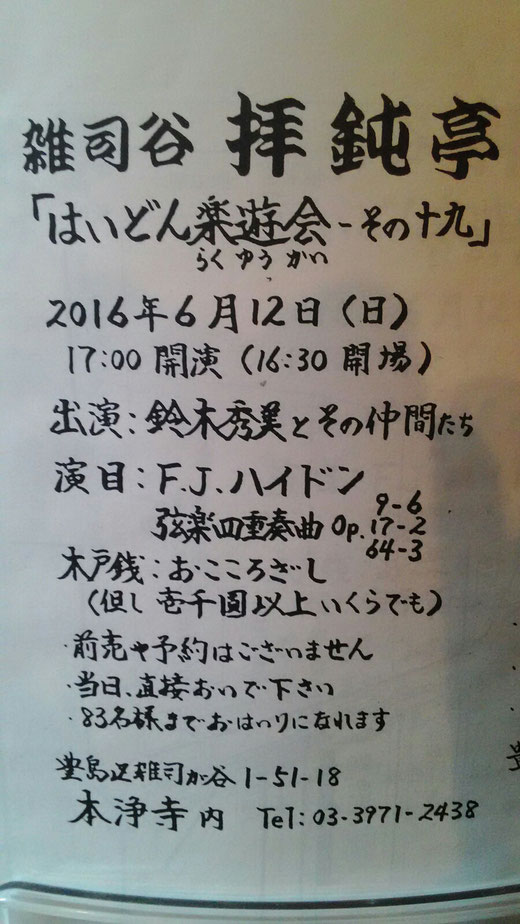 雑司谷 拝鈍亭
「はいどん楽遊会-その十九」
らくゆうかい
2016年6月12日(日)
17:00 開演(16:30 開場)
出演:鈴木秀美とその仲間たち
演目:F.J.ハイドン
弦楽四重奏曲 Op.
9-6
17-2
64-3
木戸銭:おこころざし
(但し 壱千圓以上いくらでも)
・前売や予約はございません
・当日、直接おいで下さい
・83名様までおはいりになれます
豊島区雑司が谷1-51-18
本浄寺内 Tel:03-3971-2438